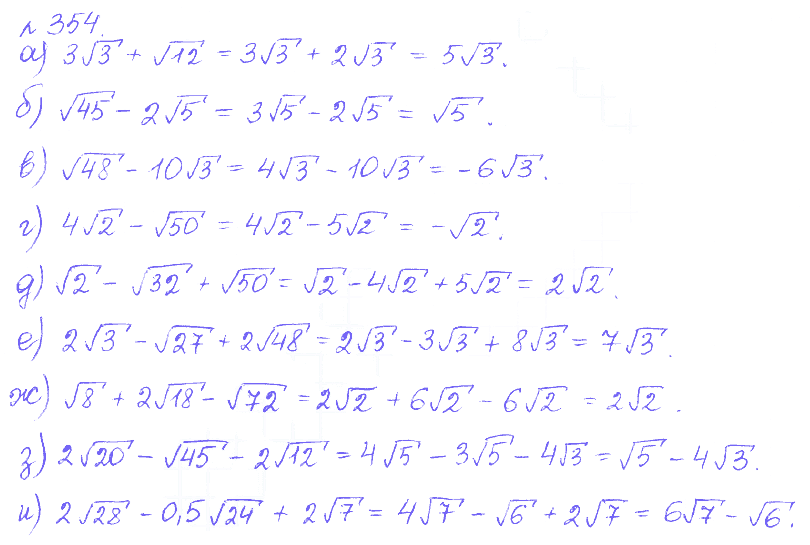 № 354.
а) 3√3 + √12 = 3√3 + 2√3 = 5√3.
б) √45 - 2√5 = 3√5 - 2√5 = √5.
в) √48 - 10√3 = 4√3 - 10√3 = -6√3.
г) 4√2 - √50 = 4√2 - 5√2 = -√2.
д) √2 - √32 + √50 = √2 - 4√2 + 5√2 = 2√2.
е) 2√3 - √27 + 2√48 = 2√3 - 3√3 + 8√3 = 7√3.
ж) √8 + 2√18 - √72 = 2√2 + 6√2 - 6√2 = 2√2.
з) 2√20 - √45 - 2√12 = 4√5 - 3√5 - 4√3 = √5 - 4√3.
и) 2√28 - 0,5√24 + 2√7 = 4√7 - √6 + 2√7 = 6√7 - √6.